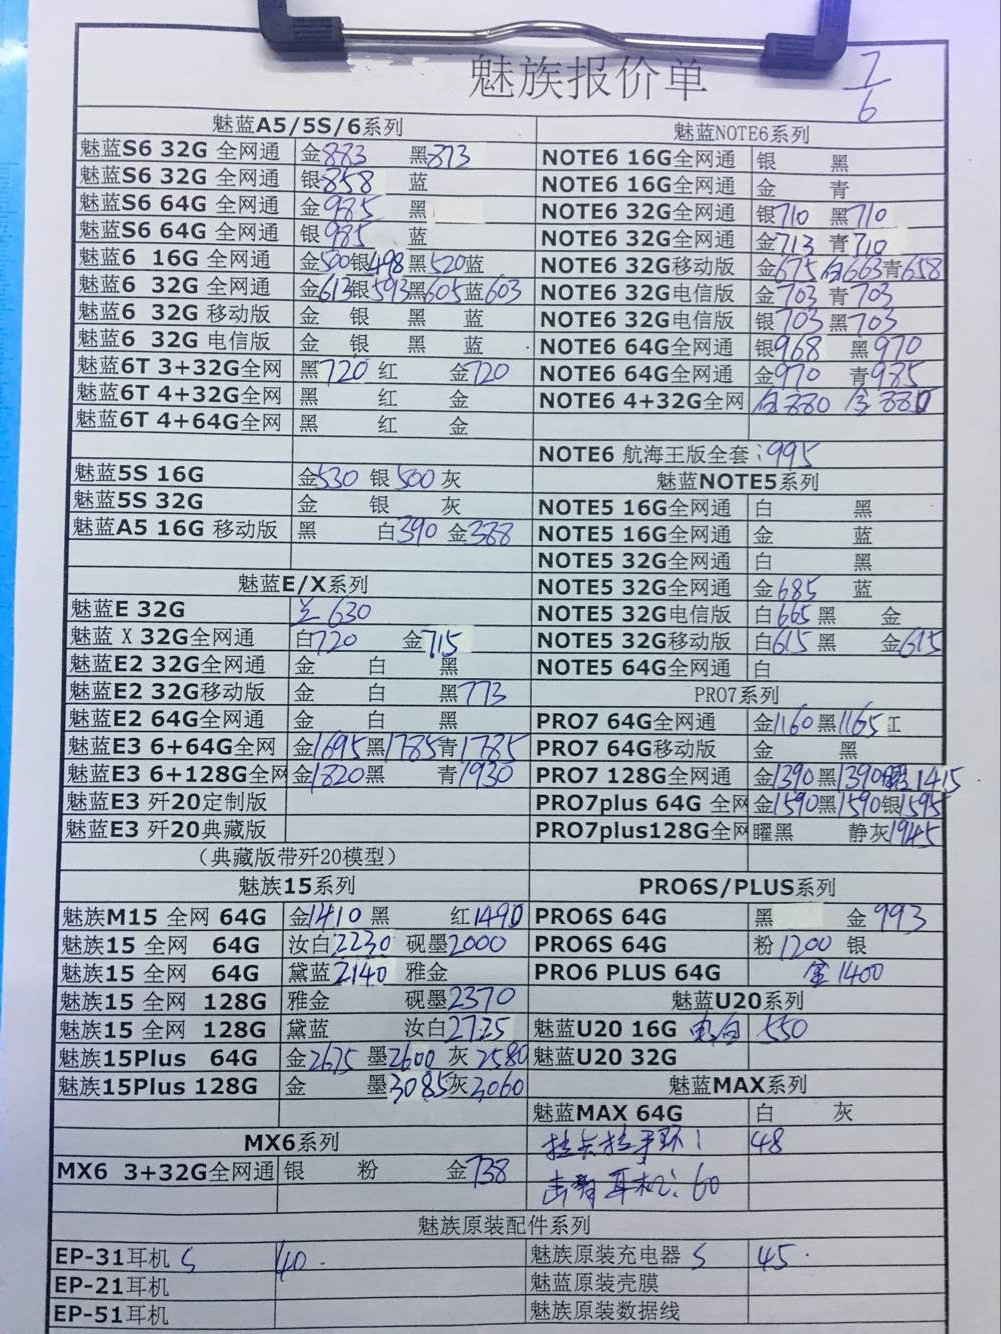 魅族报价单
7/6
魅蓝A5/5S/6系列
魅蓝S6 32G 全网通 金883 黑873
魅蓝S6 32G 全网通 银858 蓝
魅蓝S6 64G 全网通 金985 黑
魅蓝S6 64G 全网通 银985 蓝
魅蓝6 16G 全网通 金500银498黑520蓝
魅蓝6 32G 全网通 金613银593黑605蓝603
魅蓝6 32G 移动版 金 银 黑 蓝
魅蓝6 32G 电信版 金 银 黑 蓝
魅蓝6T 3+32G全网 黑720 红 金720
魅蓝6T 4+32G全网 黑 红 金
魅蓝6T 4+64G全网 黑 红 金
魅蓝5S 16G 金530 银500 灰
魅蓝5S 32G 金 银 灰
魅蓝A5 16G 移动版 黑 白390 金388
魅蓝E/X系列
魅蓝E 32G 兰630
魅蓝X 32G全网通 白720 金715
魅蓝E2 32G全网通 金 白 黑
魅蓝E2 32G移动版 金 白 黑773
魅蓝E2 64G全网通 金 白 黑
魅蓝E3 6+64G全网 金1695黑1785青1785
魅蓝E3 6+128G全网 金1820黑 青1930
魅蓝E3 歼20定制版
魅蓝E3 歼20典藏版
（典藏版带歼20模型）
魅族15系列
魅族M15 全网 64G 金1410 黑 红1490
魅族15 全网 64G 汝白2230 砚墨2000
魅族15 全网 64G 黛蓝2140 雅金
魅族15 全网 128G 雅金 砚墨2370
魅族15 全网 128G 黛蓝 汝白2725
魅族15Plus 64G 金2675 墨2600 灰2580
魅族15Plus 128G 金 墨3085灰3060
MX6系列
MX6 3+32G全网通 银 粉 金738
魅蓝NOTE6系列
NOTE6 16G全网通 银 黑
NOTE6 16G全网通 金 青
NOTE6 32G全网通 银710 黑710
NOTE6 32G全网通 金713 青710
NOTE6 32G移动版 金675白663青658
NOTE6 32G电信版 金703 青703
NOTE6 32G电信版 银703 黑703
NOTE6 64G全网通 银968 黑970
NOTE6 64G全网通 金970 青985
NOTE6 4+32G全网 白880 金880
NOTE6 航海王版全套：995
魅蓝NOTE5系列
NOTE5 16G全网通 白 黑
NOTE5 16G全网通 金 蓝
NOTE5 32G全网通 白 黑
NOTE5 32G全网通 金685 蓝
NOTE5 32G电信版 白665黑 金
NOTE5 32G移动版 白615 黑 金615
NOTE5 64G全网通 白
PRO7系列
PRO7 64G全网通 金1160黑1165红
PRO7 64G移动版 金 黑
PRO7 128G全网通 金1390黑1390 1415
PRO7plus 64G 全网 金1590黑1590银1595
PRO7plus128G全网 曜黑 静灰1945
PRO6S/PLUS系列
PRO6S 64G 黑 金993
PRO6S 64G 粉1200 银
PRO6 PLUS 64G 金1400
魅蓝U20系列
魅蓝U20 16G 电白 550
魅蓝U20 32G
魅蓝MAX系列
魅蓝MAX 64G 白 灰
拉卡拉手环： 48
耳机：60
魅族原装配件系列
EP-31耳机 S 40.
EP-21耳机
EP-51耳机
魅族原装充电器 S 45.
魅蓝原装壳膜
魅族原装数据线